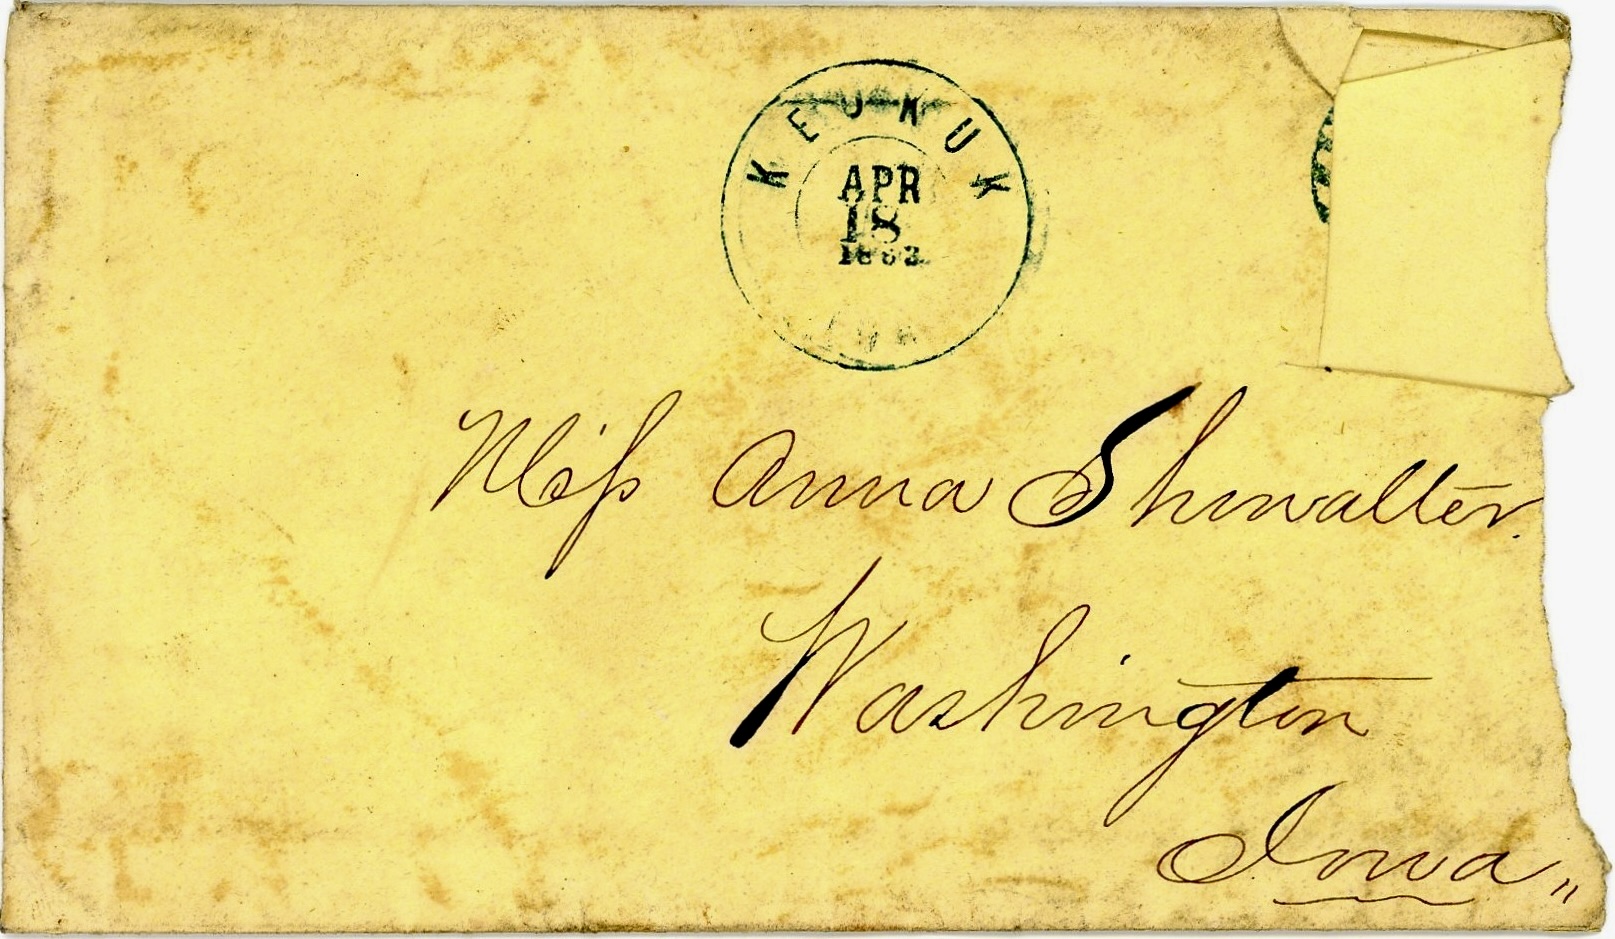 KEOKUK
APR
18
1863
IOWA
Miss Anna Showalter.
Washington
Iowa "